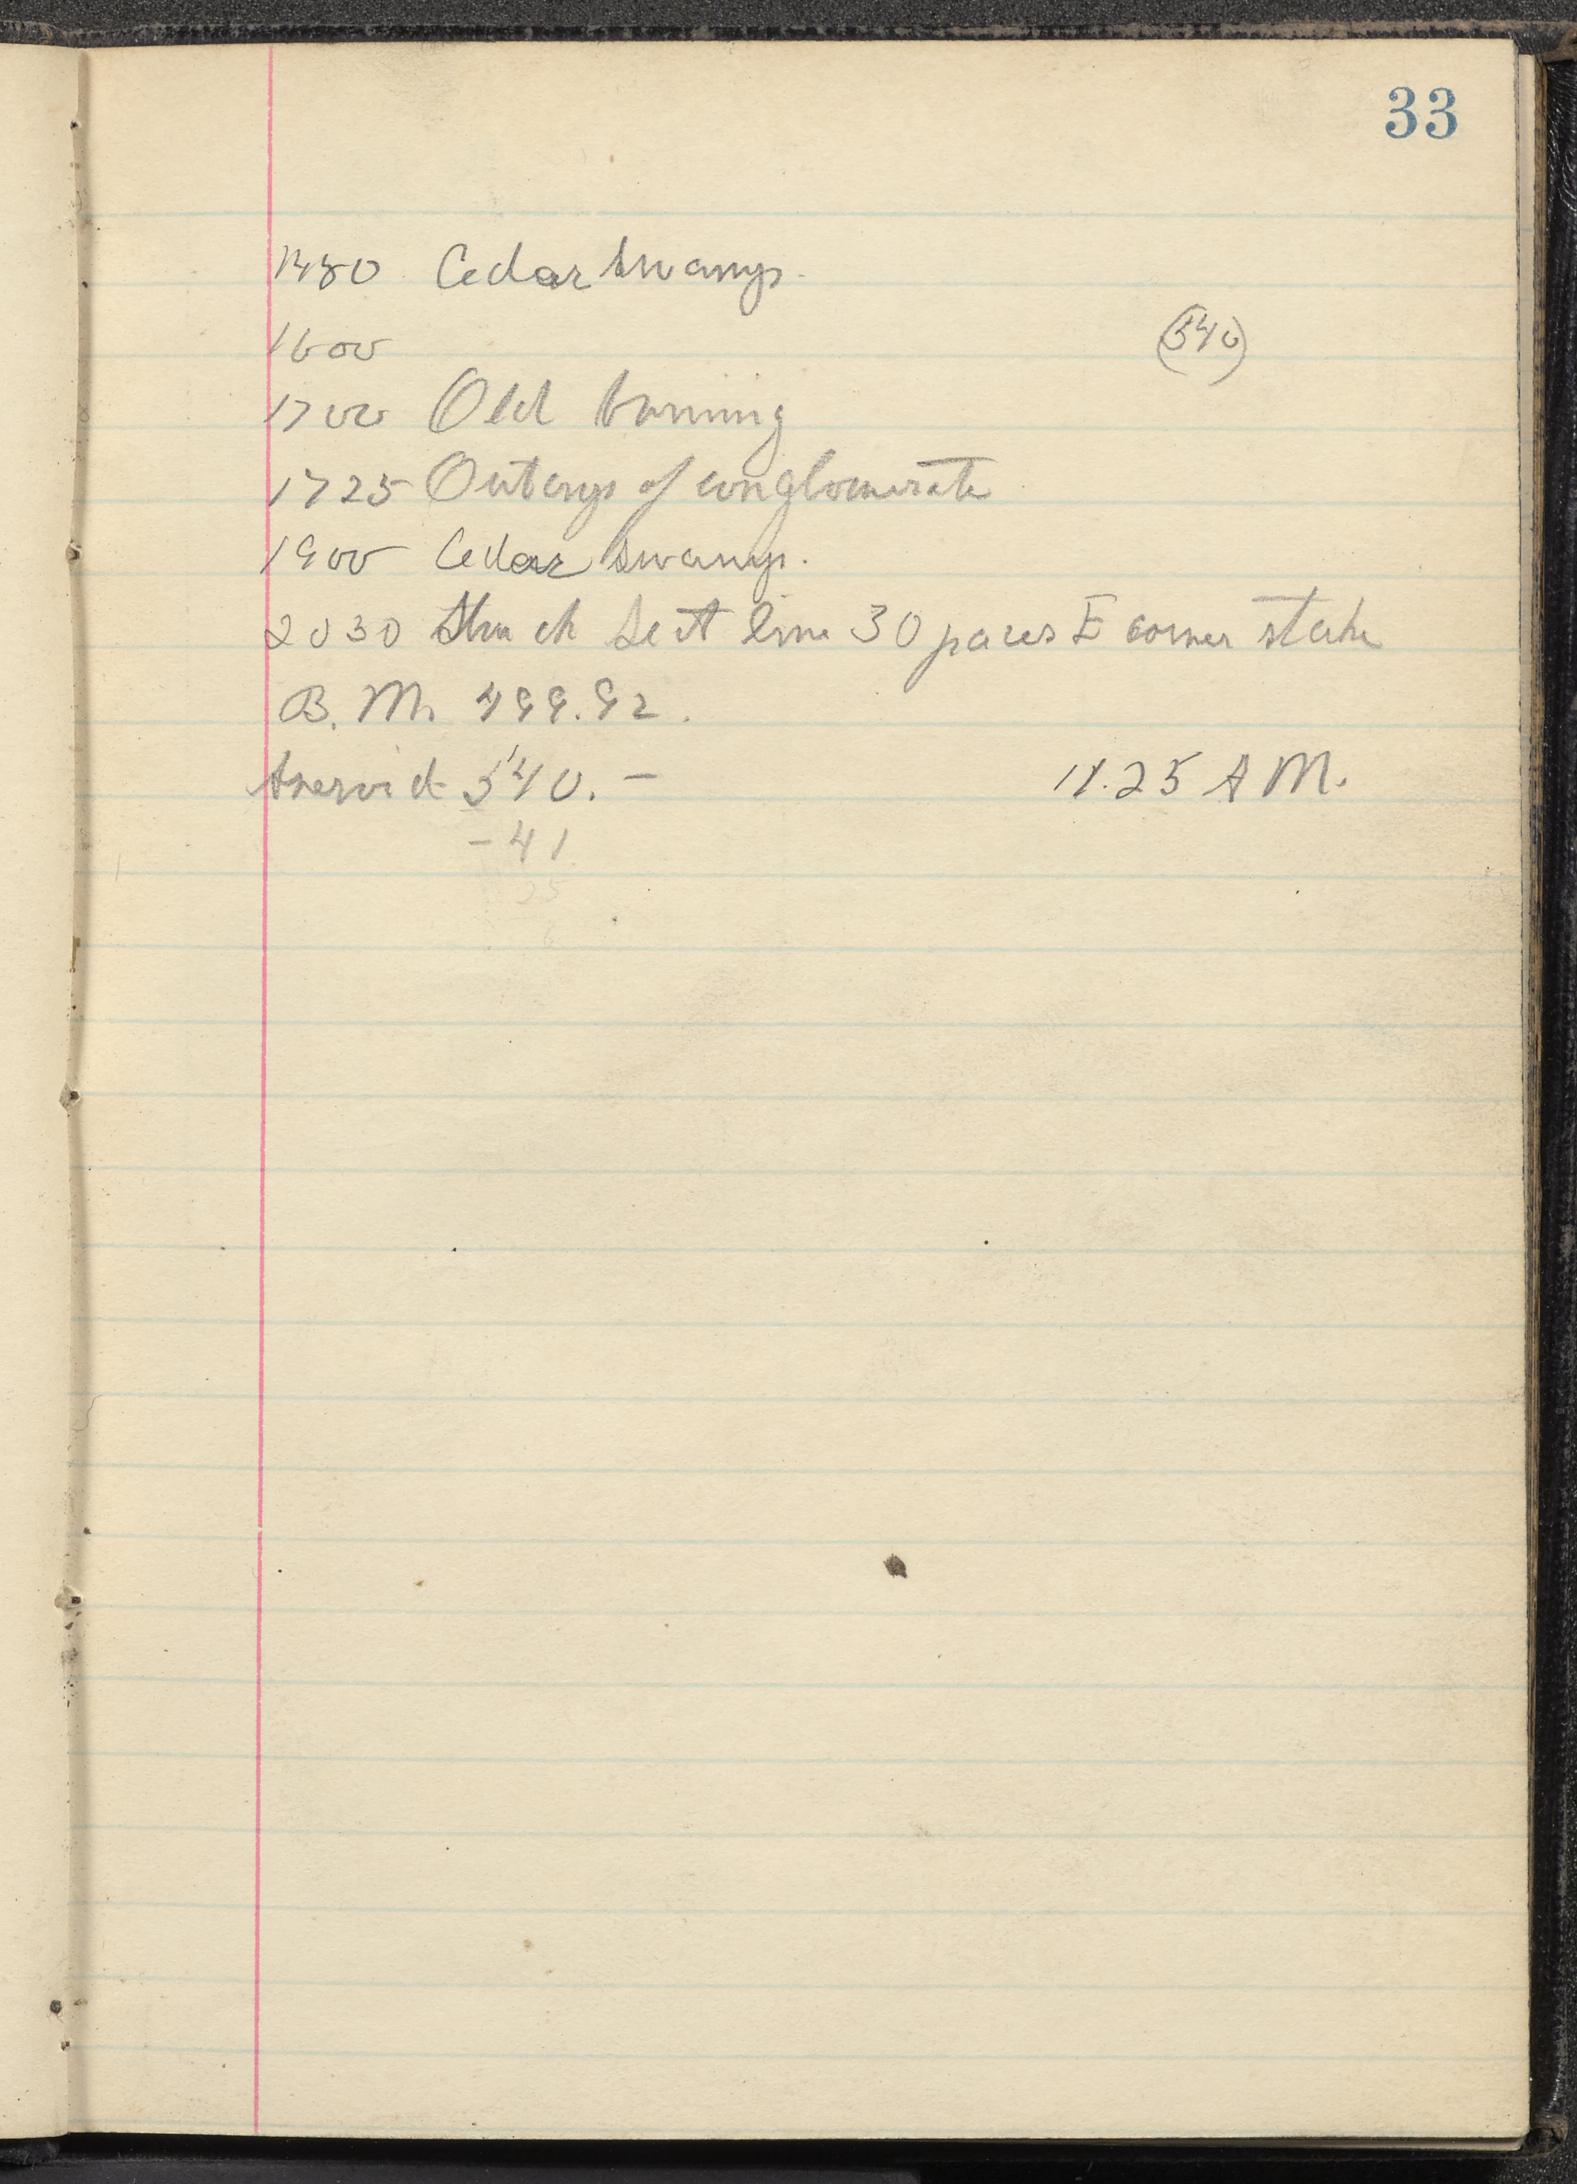 33
1480 Cedar Swamp.
1600 (540)
1700 Old burning
1725 Outcrop of conglomerate
1900 Cedar swamp.
2030 Struck Sect line 30 paces E corner stake
B. M. 499.92.
Aneroid 540. — 11.25 A M.
- 41
25